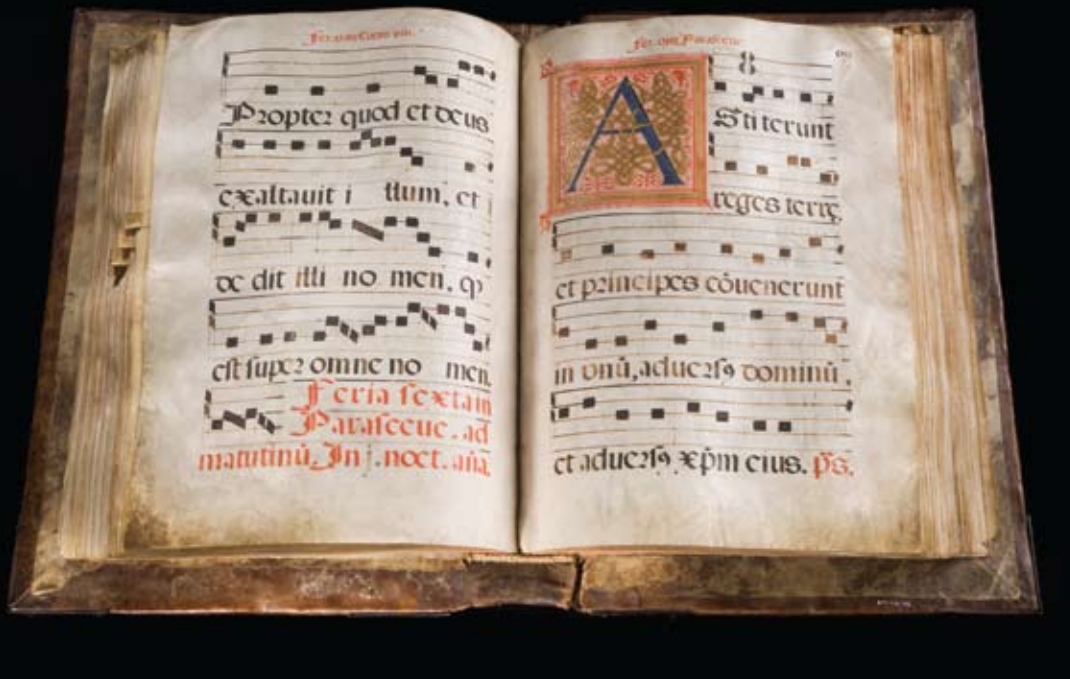 Propter quod et deus
exaltauit i llum, et
de dit illi no men, qp
est super omne no men.
Feria sexta in
Parasceue. ad
matutinū. In j. noct. aña.
A
Stiterunt
reges terrę,
et principes cōuenerunt
in unū, aduersꝰ dominū,
et aduersꝰ xp̄m eius. p̄s.